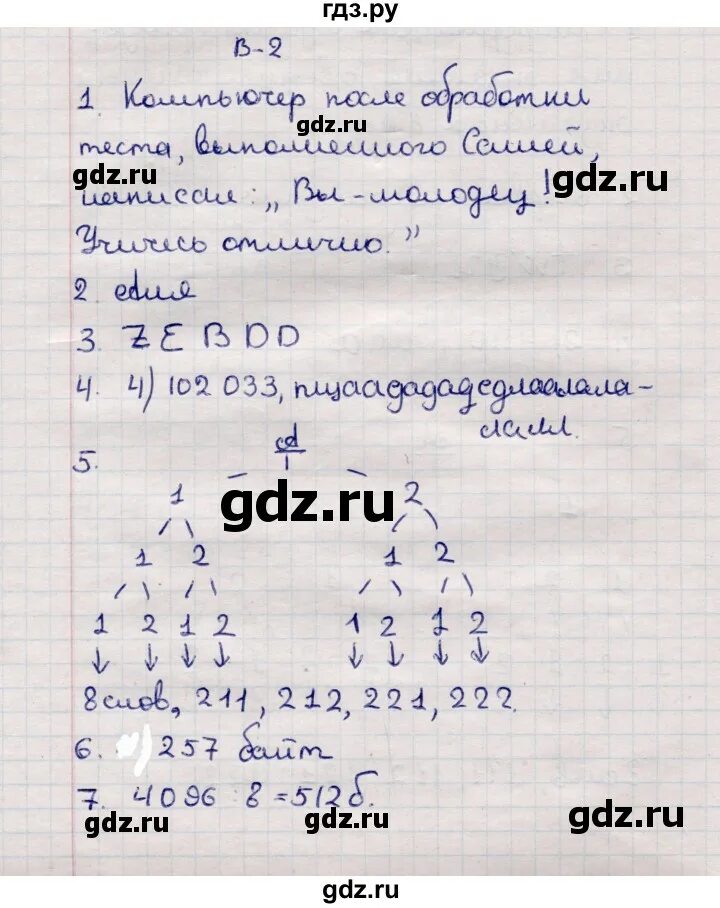 гдз.ру
В-2
1. Компьютер после обработки
gdz.ru
теста, выполненного Сашей,
gdz.ru gdz.ru
написал: „Вы - молодец!
Учитесь отлично."
2.
3. Z E B D D
4. 4) 102 033,
5.
1 2
gdz.ru
1 2 1 2
1 2 1 2 1 2 1 2
8 слов, 211, 212, 221, 222.
6. 257 байт
7. 4096 : 8 = 512 б.
gdz.ru gdz.ru gdz.ru
gdz.ru